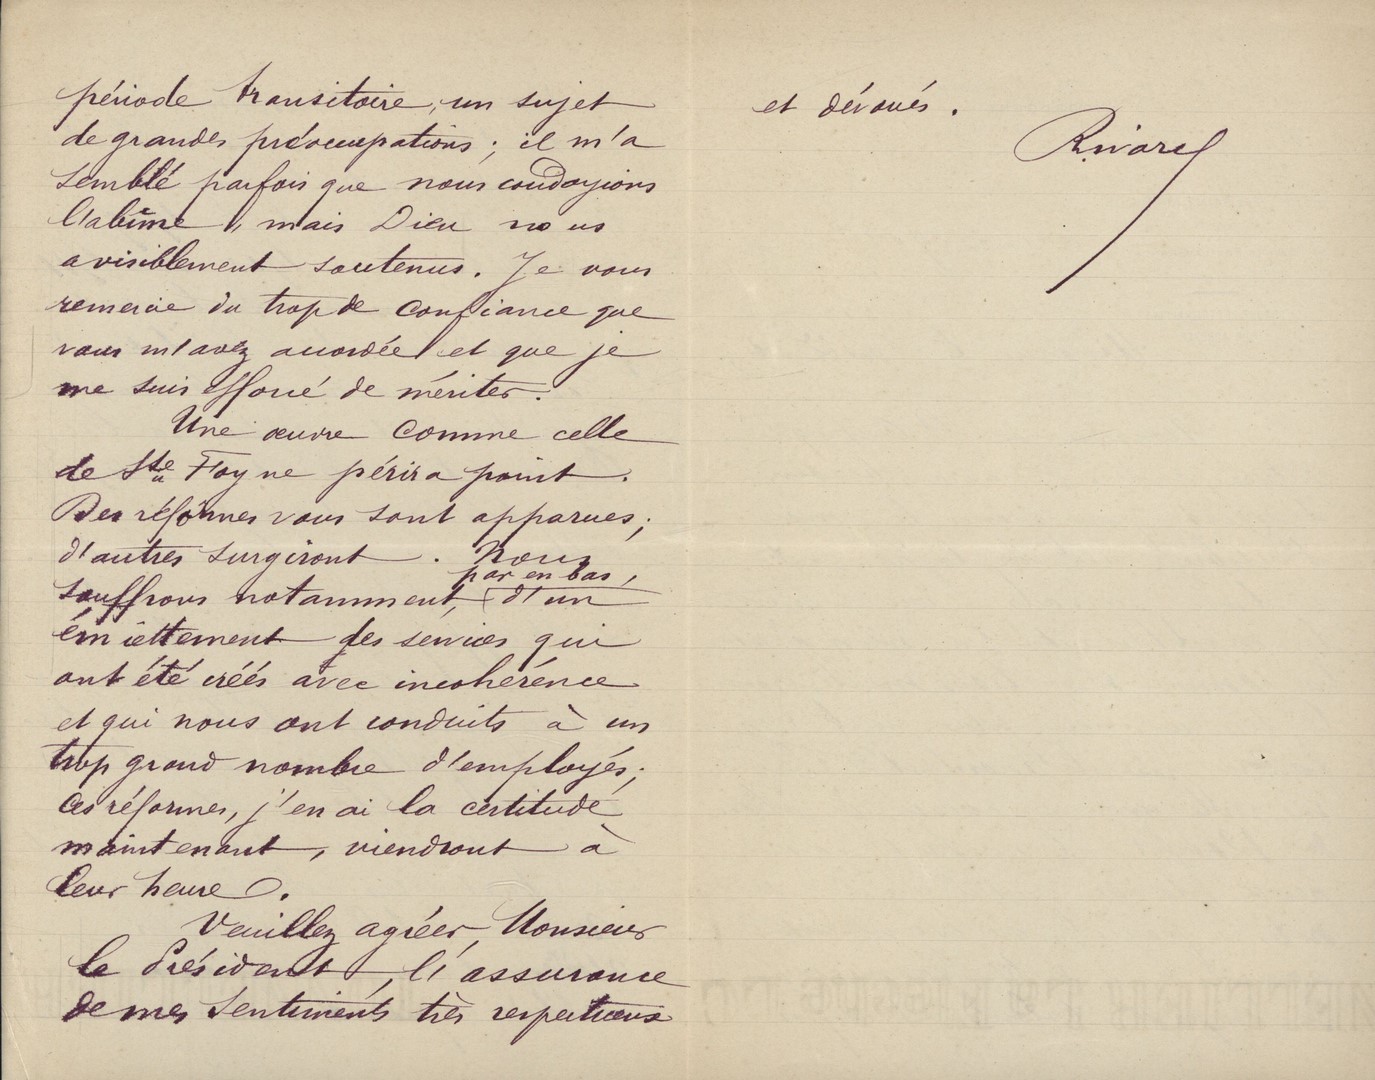 période transitoire, un sujet
de grandes préoccupations ; il m'a
semblé parfois que nous coudoyions
l'abîme, mais Dieu nous
a visiblement soutenus. Je vous
remercie du trop de confiance que
vous m'avez accordée et que je
me suis efforcé de mériter.
Une œuvre comme celle
de Ste Foy ne périra point.
Des réformes vous sont apparues ;
d'autres surgiront. Nous
par en bas,
souffrons notamment, d'un
émiettement des services qui
ont été créés avec incohérence
et qui nous ont conduits à un
trop grand nombre d'employés ;
ces réformes, j'en ai la certitude
maintenant, viendront à
leur heure.
Veuillez agréer, Monsieur
le Président, l'assurance
de mes sentiments très respectueux
et dévoués.